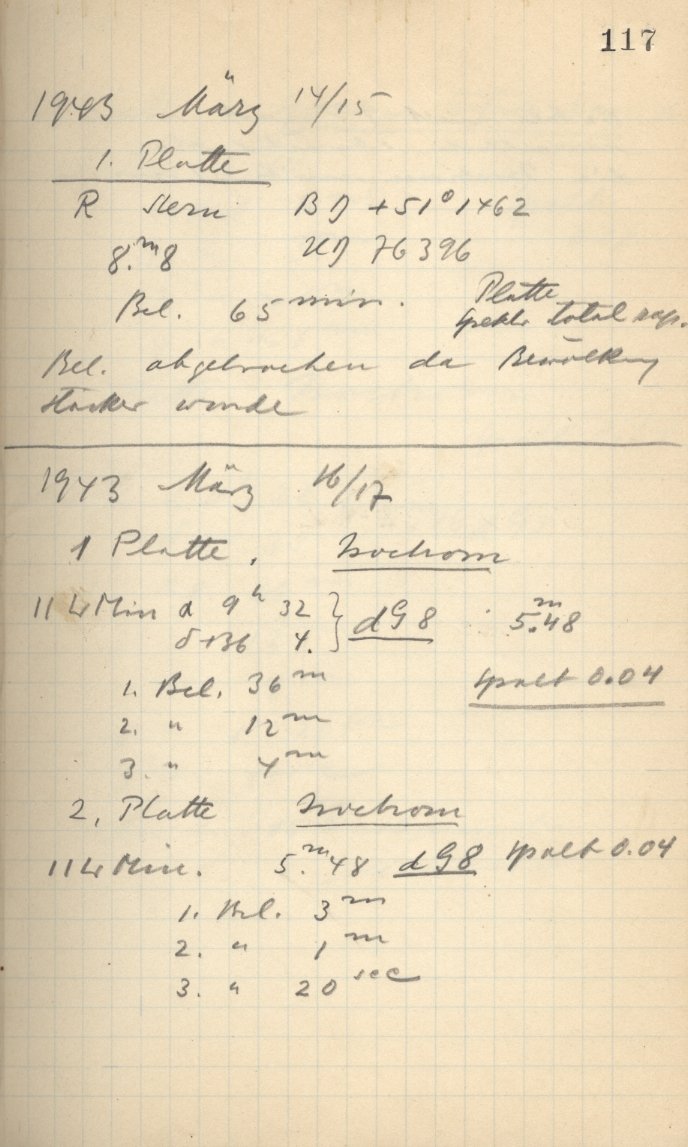 117
1943 März 14/15
1. Platte
R Stern BD +51° 1462
8.ᵐ8 HD 76396
Bel. 65 min. Platte
Spektr. total
Bel. abgebrochen da Bewölkung
stärker wurde
1943 März 16/17
1 Platte. Isochrom
11 L Min α 9ʰ 32 } dG8 5.ᵐ48
δ+36 4.
1. Bel. 36ᵐ Spalt 0.04
2. " 12ᵐ
3. " 4ᵐ
2. Platte Isochrom
11 L Min. 5.ᵐ48 dG8 Spalt 0.04
1. Bel. 3ᵐ
2. " 1ᵐ
3. " 20 sec